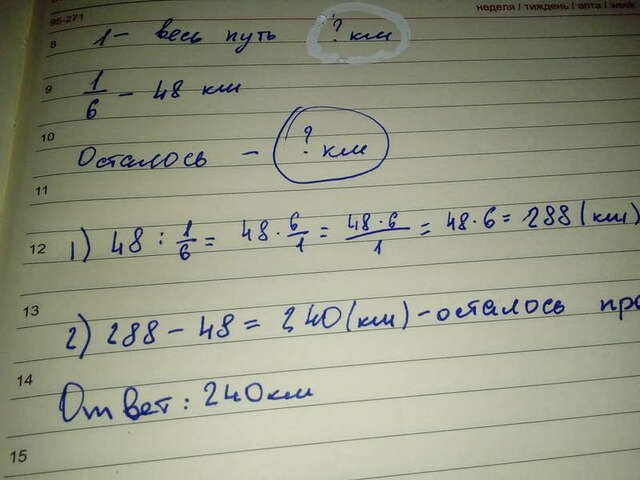 неделя / тиждень / апта / week
95-271
8
1 – весь путь ? км
9
1/6 – 48 км
10
Осталось – ? км
11
12
1) 48 : 1/6 = 48 · 6/1 = 48·6/1 = 48·6 = 288 (км)
13
2) 288 – 48 = 240 (км) – осталось про
14
Ответ: 240 км
15